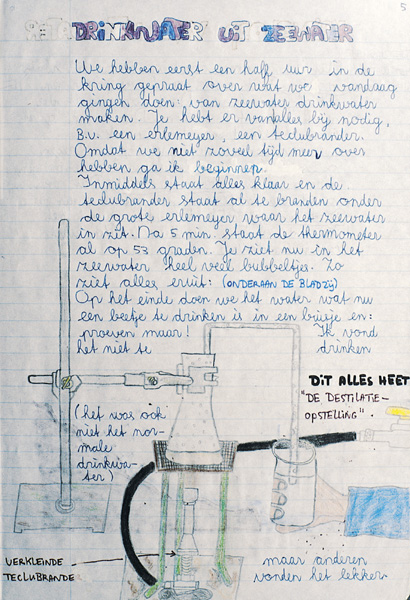 5
DRINKWATER UIT ZEEWATER
We hebben eerst een half uur in de
kring gepraat over wat we vandaag
gingen doen: van zeewater drinkwater
maken. Je hebt er van alles bij nodig.
B.v. een erlemeyer, een teclubrander.
Omdat we niet zoveel tijd meer over
hebben ga ik beginnen.
Inmiddels staat alles klaar en de
teclubrander staat al te branden onder
de grote erlemeyer waar het zeewater
in zit. Na 5 min. staat de thermometer
al op 53 graden. Je ziet nu in het
zeewater heel veel bubbeltjes. Zo
ziet alles eruit: (ONDERAAN DE BLADZIJ)
Op het einde doen we het water wat nu
een beetje te drinken is in een buisje en:
proeven maar! Ik vond
het niet te drinken
(het was ook
niet het nor-
male
drinkwa-
ter)
DIT ALLES HEET
"DE DESTILATIE-
OPSTELLING".
VERKLEINDE
TECLUBRANDE
maar anderen
vonden het lekker.